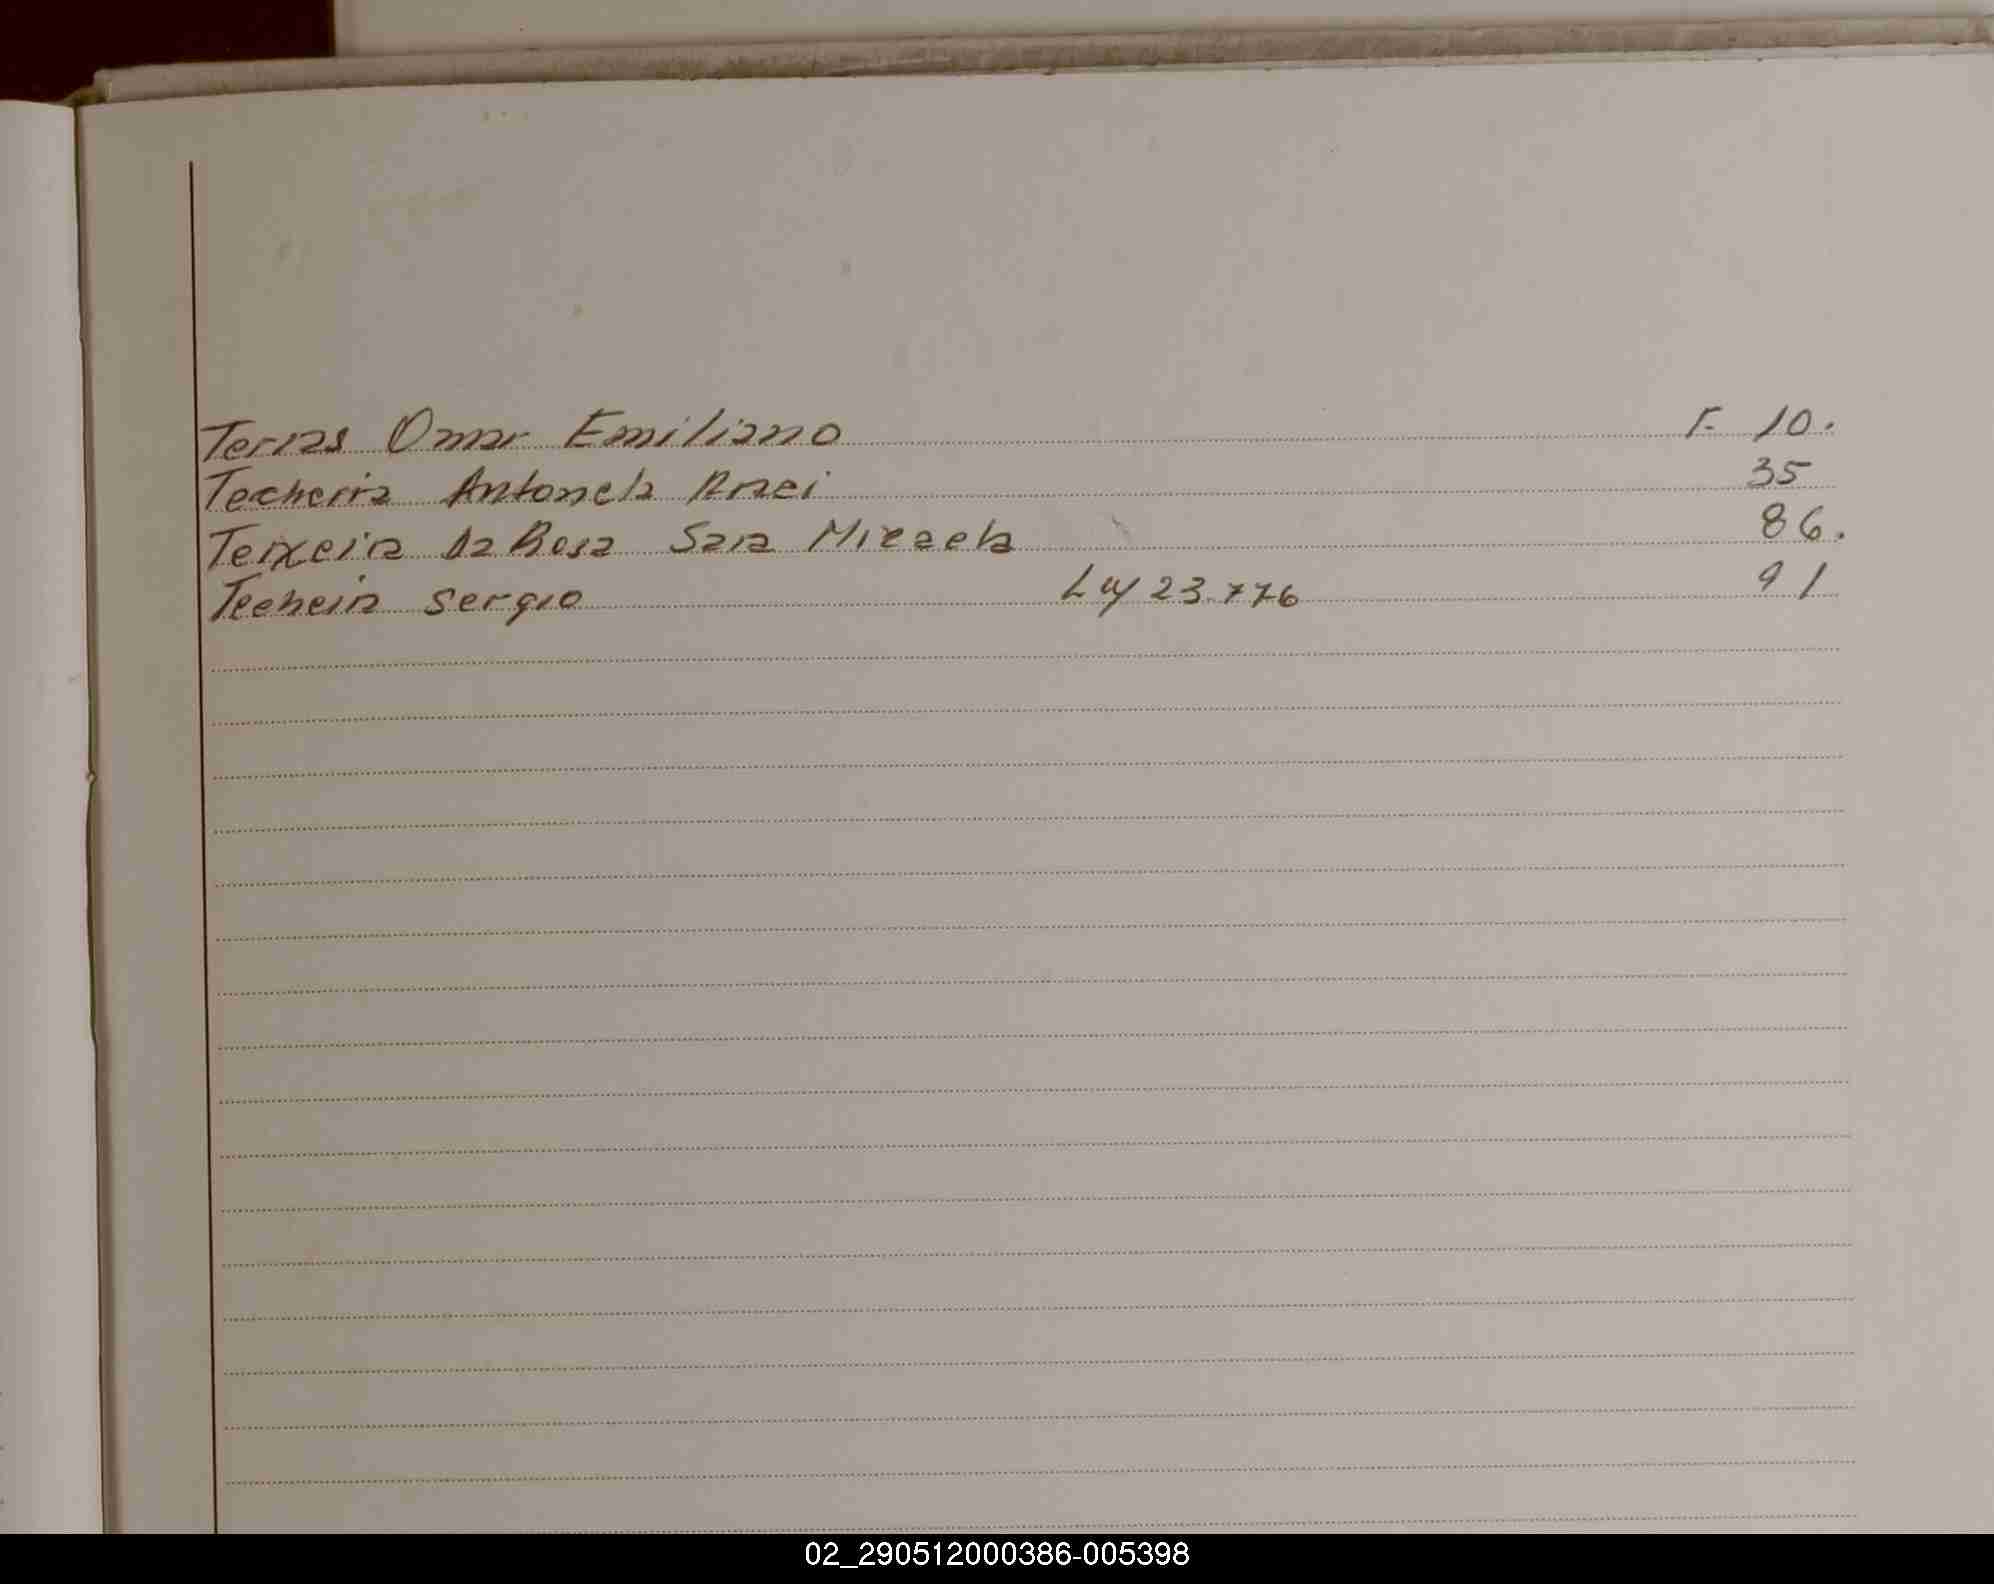 Terras Omar Emiliano F. 10.
Techeira Antonela Anaei 35
Teixeira Da Rosa Sara Micaela 86.
Techeira Sergio Ley 23.776 91
02_290512000386-005398